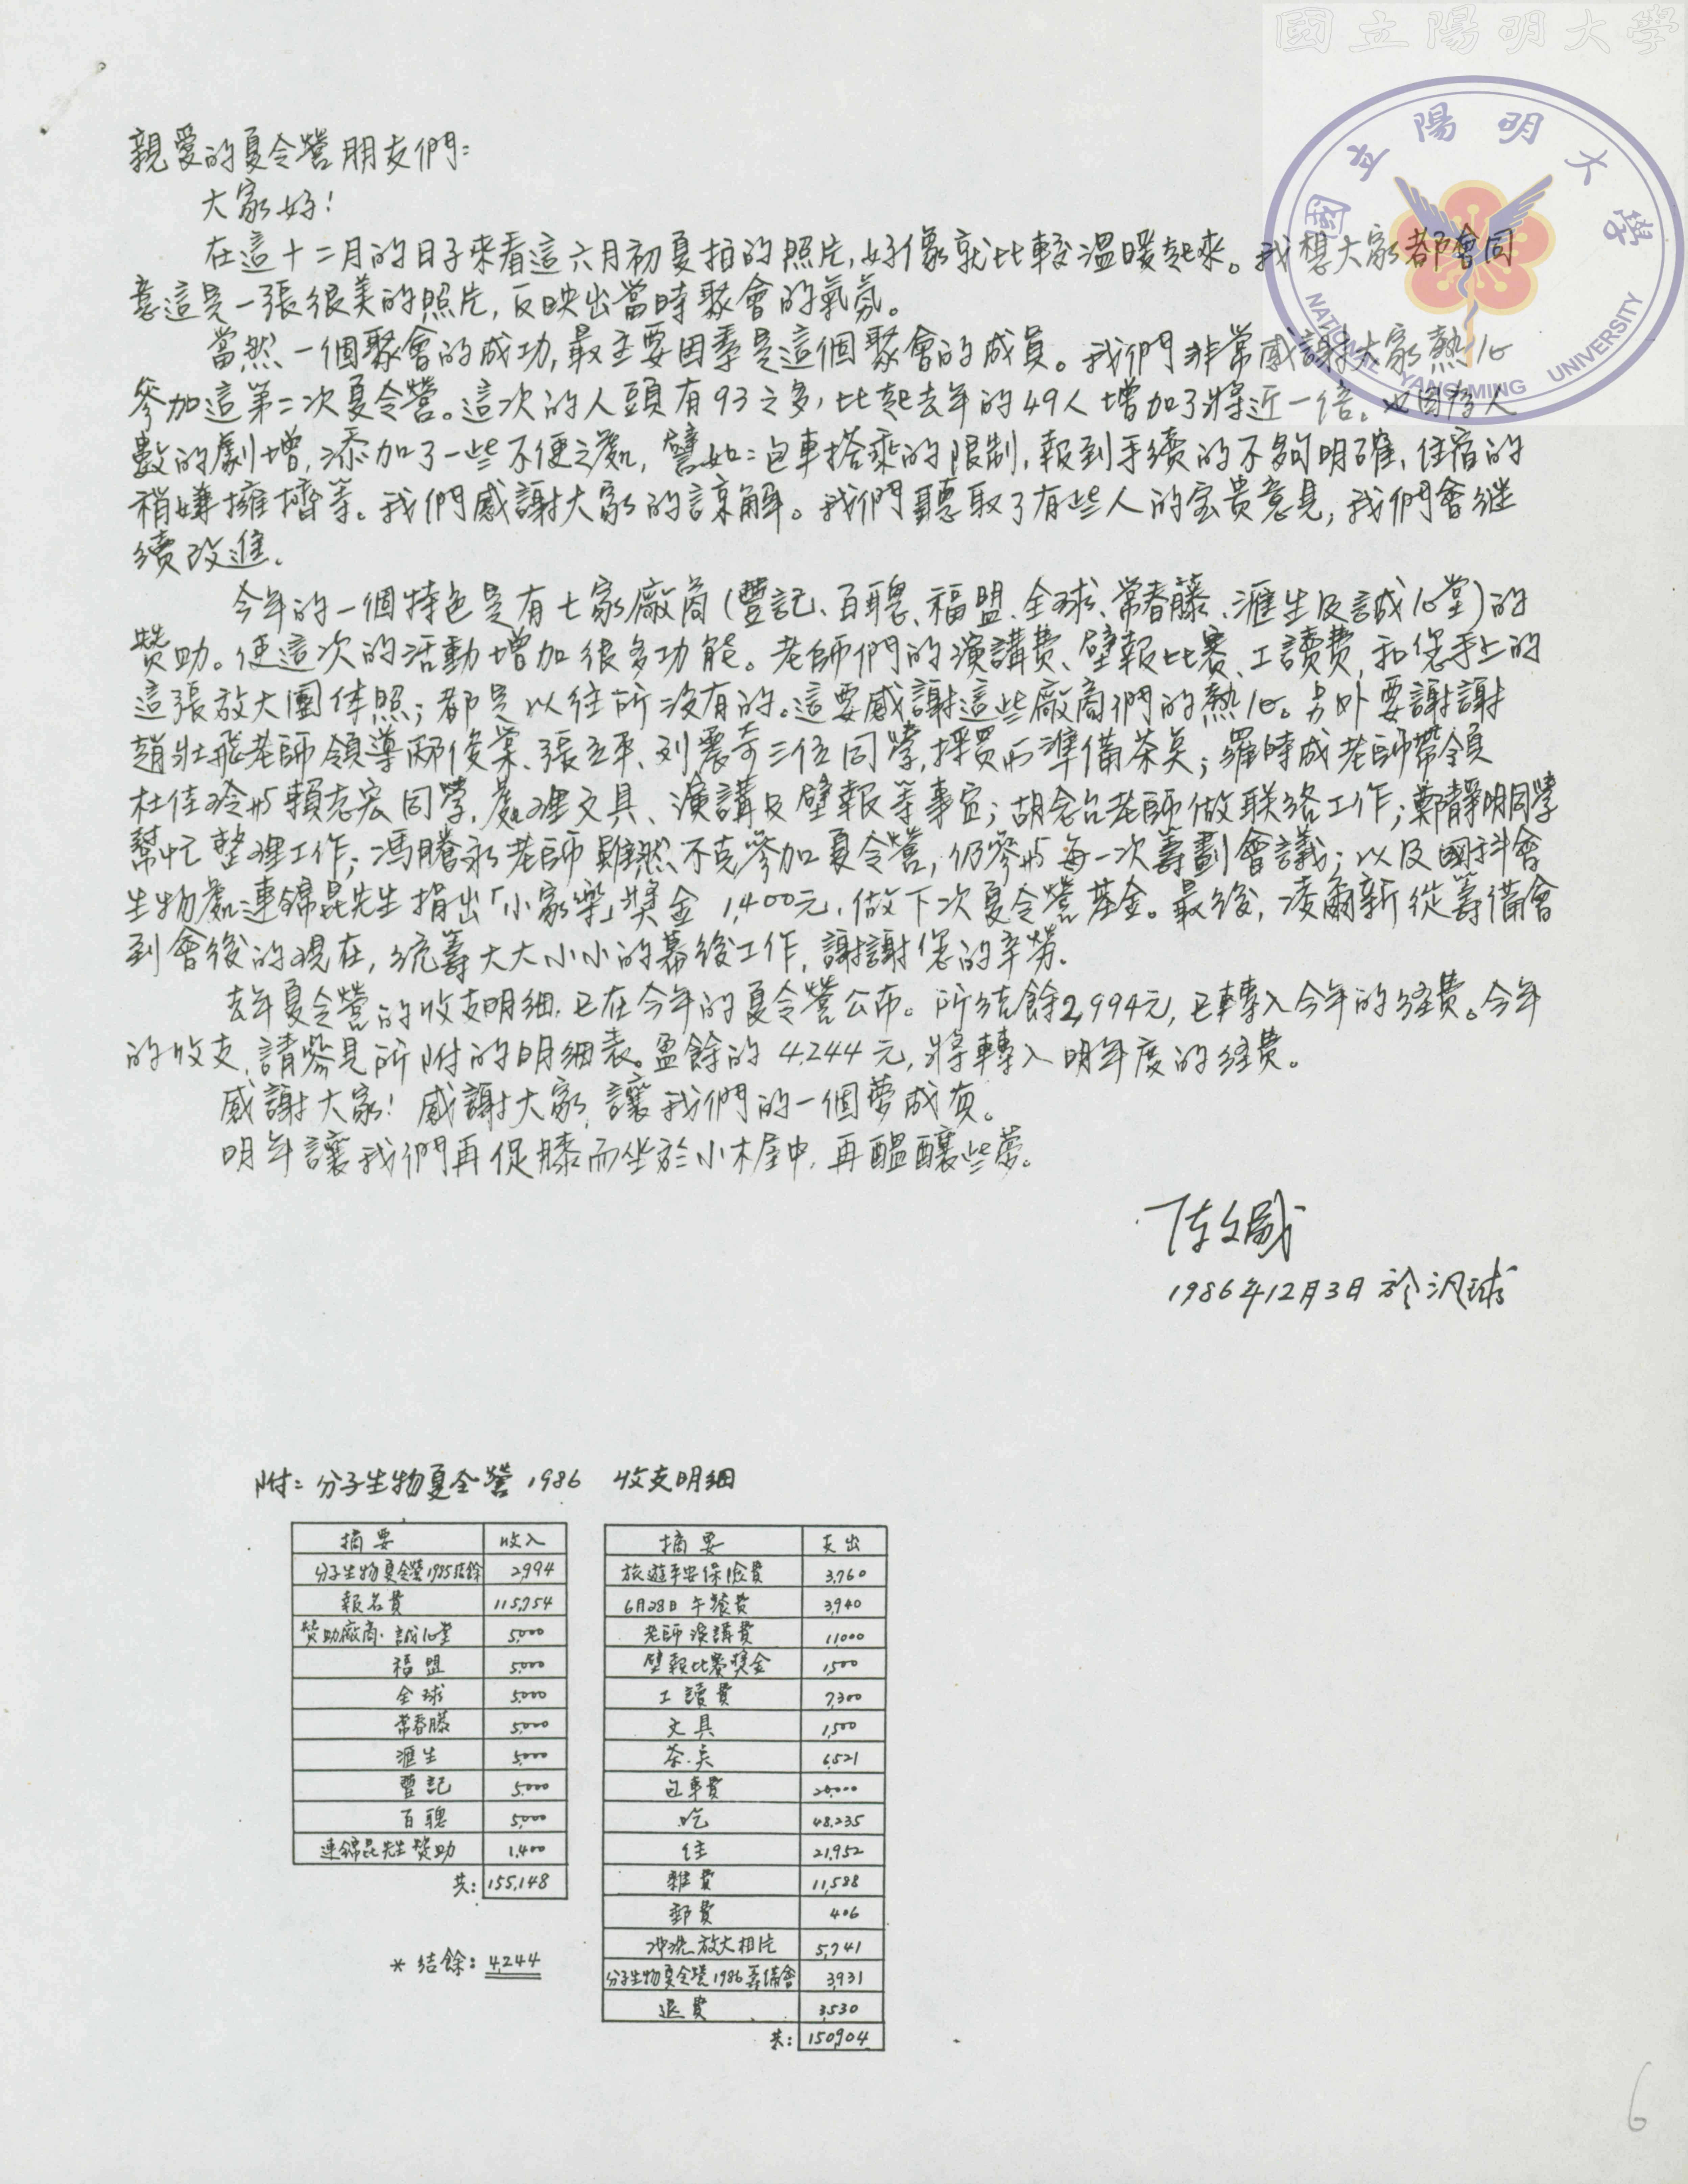 國立陽明大學
國立陽明大學
NATIONAL YANG-MING UNIVERSITY
親愛的夏令營朋友們:
大家好!
在這十二月的日子來看這六月初夏拍的照片,好像就比較溫暖起來。我想大家都會同
意這是一張很美的照片,反映出當時聚會的氣氛。
當然一個聚會的成功,最主要因素是這個聚會的成員。我們非常感謝大家熱心
參加這第二次夏令營。這次的人頭有93之多,比起去年的49人增加了將近一倍。也因為人
數的劇增,添加了一些不便之處,譬如:包車搭乘的限制,報到手續的不夠明確、住宿的
稍嫌擁擠等。我們感謝大家的諒解。我們聽取了有些人的宝貴意見,我們會继
續改進。
今年的一個特色是有七家廠商(豐記、百聰、福盟、全球、常春藤、滙生及誠心堂)的
贊助。使這次的活動增加很多功能。老師們的演講費、壁報比賽、工讀費,和您手上的
這張放大團体照;都是以往所沒有的。這要感謝這些廠商們的熱心。另外要謝謝
趙壯飛老師領導邴俊榮、張立平、刘震奇三位同學,採買而準備茶點;羅時成老師帶領
杜佳玲与賴志宏同學,處理文具、演講及壁報等事宜;胡念台老師做联络工作;鄭靜明同學
幫忙整理工作;馮騰永老師雖然不克參加夏令營,仍參与每一次籌劃會議;以及國科會
生物處連錦昆先生捐出「小家樂」獎金1,400元,做下次夏令營基金。最後,凌爾新從籌備會
到會後的現在,統籌大大小小的幕後工作,謝謝您的辛勞.
去年夏令營的收支明細,已在今年的夏令營公布。所结餘2,994元,已轉入今年的经費。今年
的收支,請參見所附的明細表。盈餘的4,244元,將轉入明年度的经費。
感謝大家!感謝大家,讓我們的一個夢成真。
明年讓我們再促膝而坐於小木屋中,再醞釀些夢。
陳文盛
1986年12月3日於汎球
附:分子生物夏令營1986 收支明細
摘要 收入
分子生物夏令營1985结餘 2,994
報名費 115,754
贊助廠商·誠心堂 5,000
福盟 5,000
全球 5,000
常春藤 5,000
滙生 5,000
豐記 5,000
百聰 5,000
連錦昆先生贊助 1,400
共: 155,148
* 结餘: 4,244
摘要 支出
旅遊平安保險費 3,760
6月28日午餐費 3,940
老師演講費 11,000
壁報比賽獎金 1,500
工讀費 7,300
文具 1,500
茶点 6,521
包車費 20,000
吃 48,235
住 21,952
雜費 11,588
郵費 406
冲洗放大相片 5,741
分子生物夏令營1986籌備會 3,931
退費 3,530
共: 150,904
6